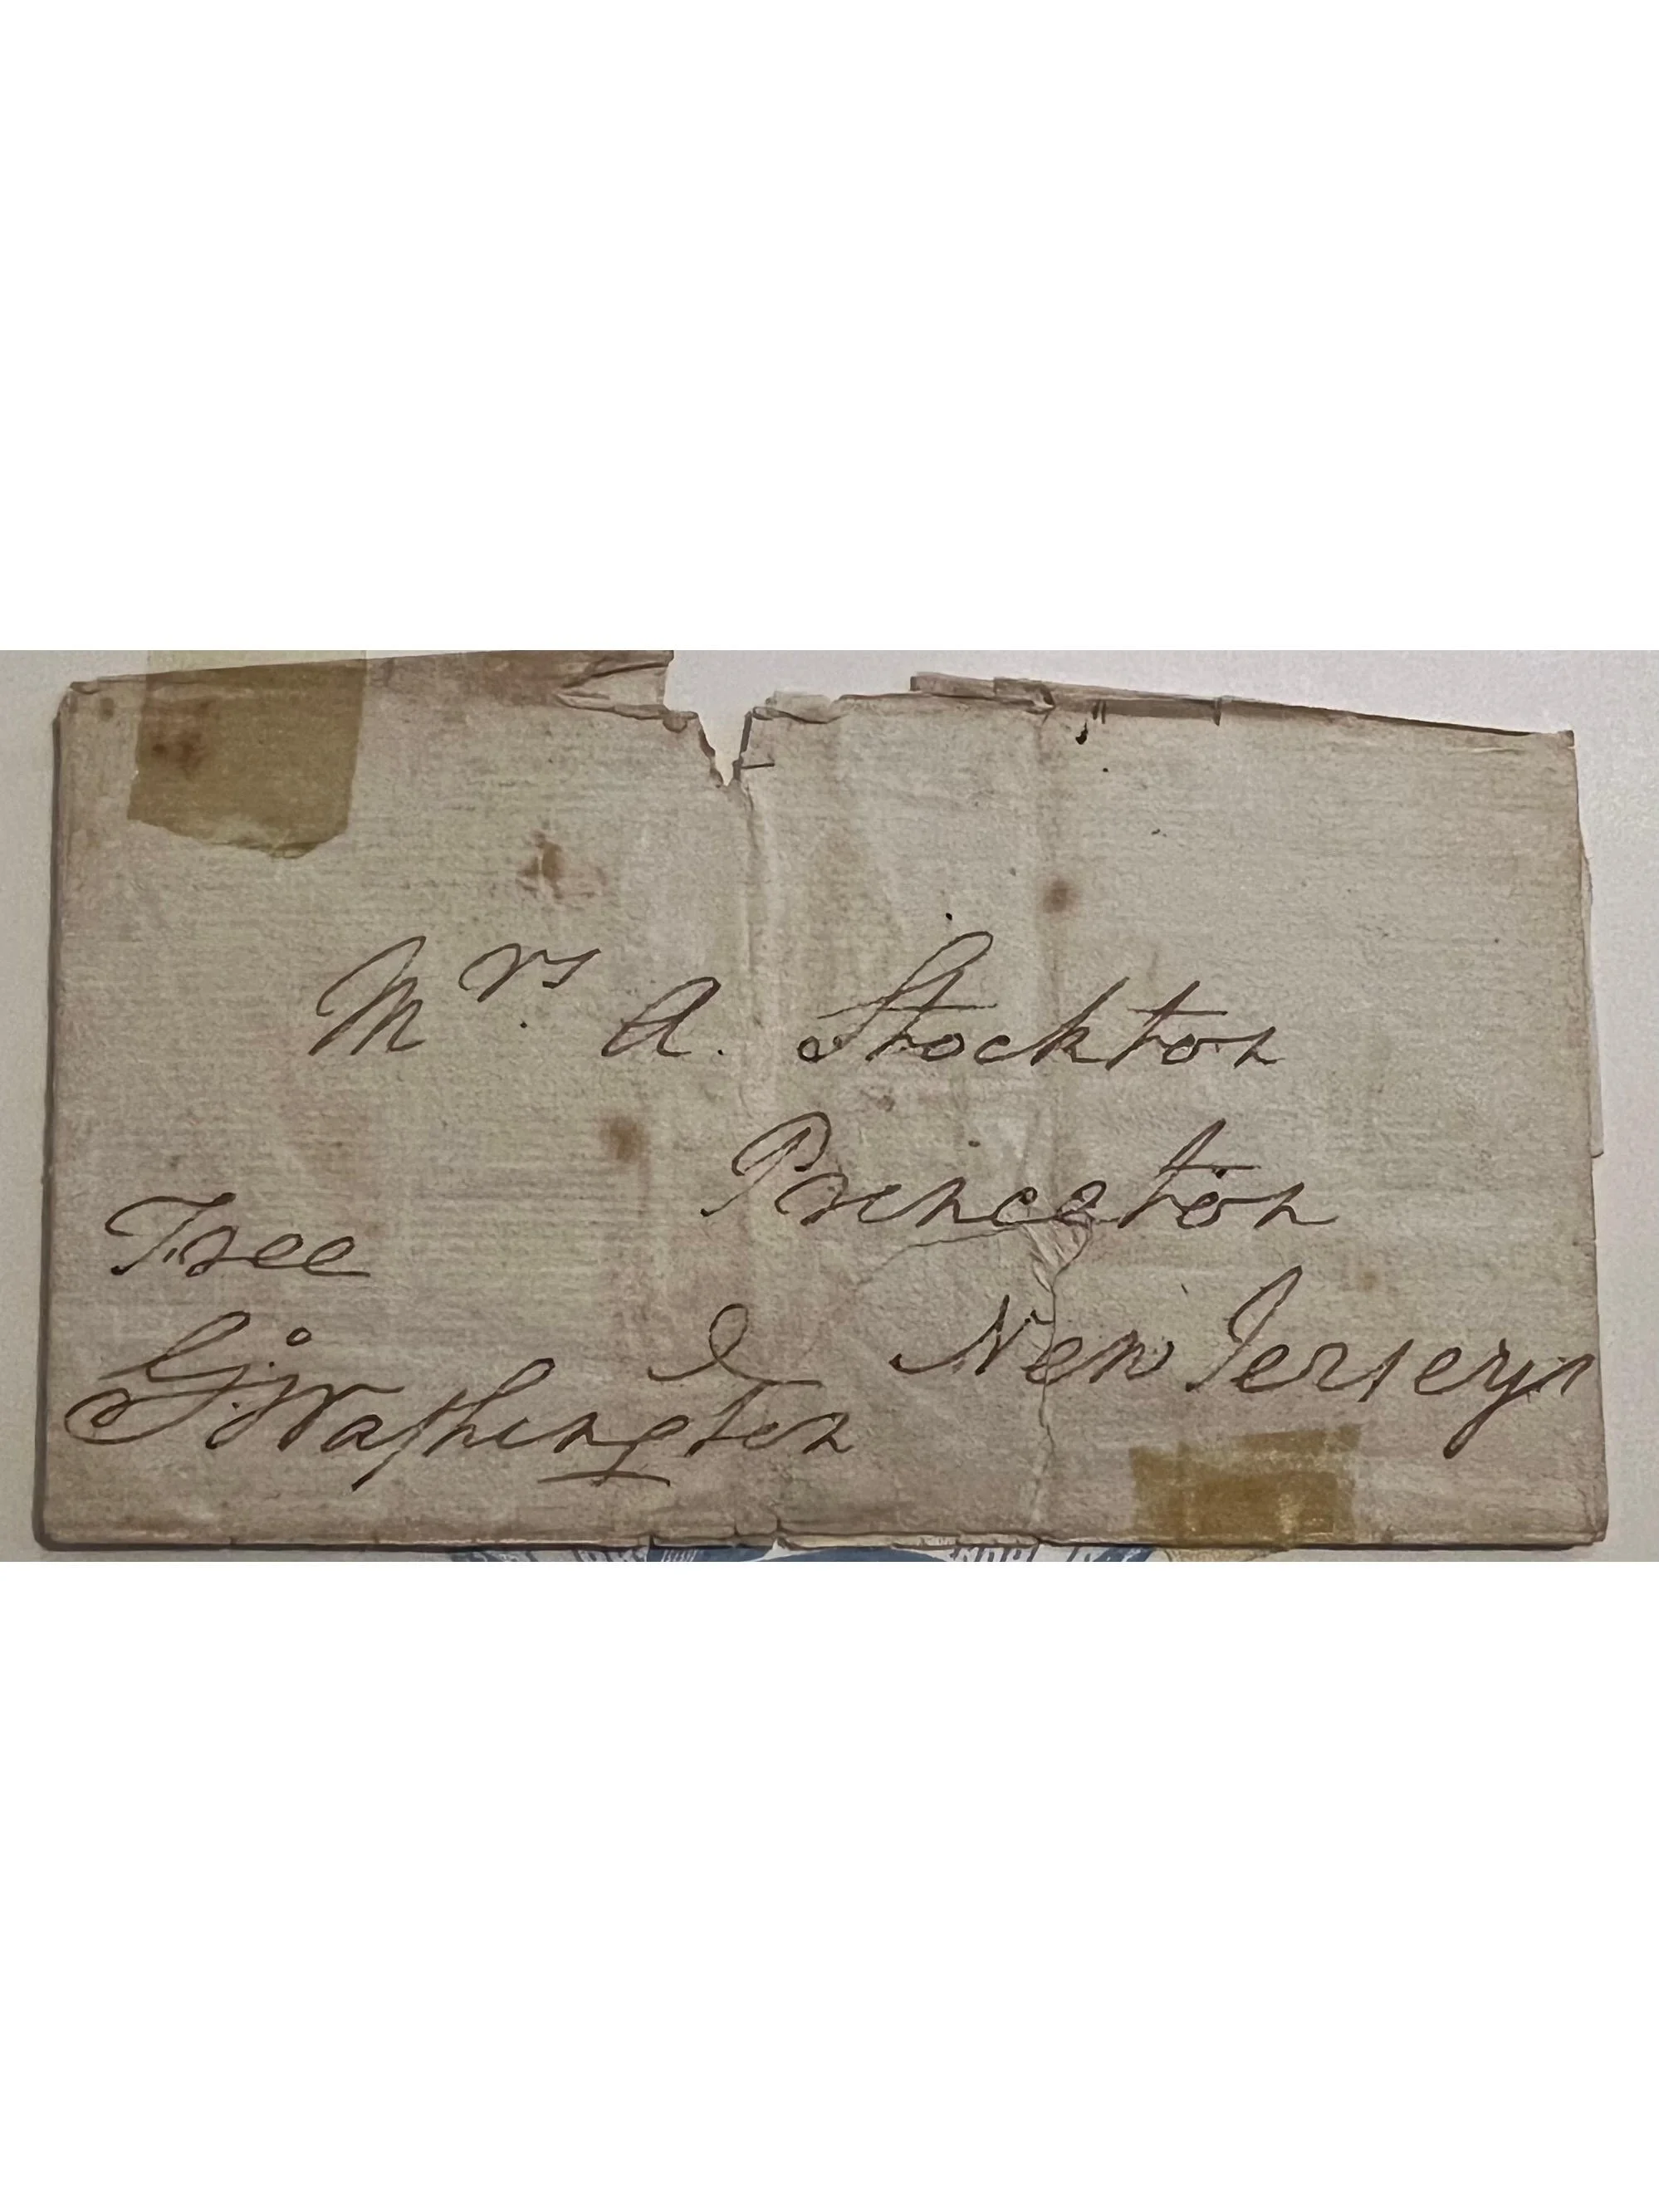 Mrs. A. Stockton
Princeton
New Jersey
Free
G:Washington